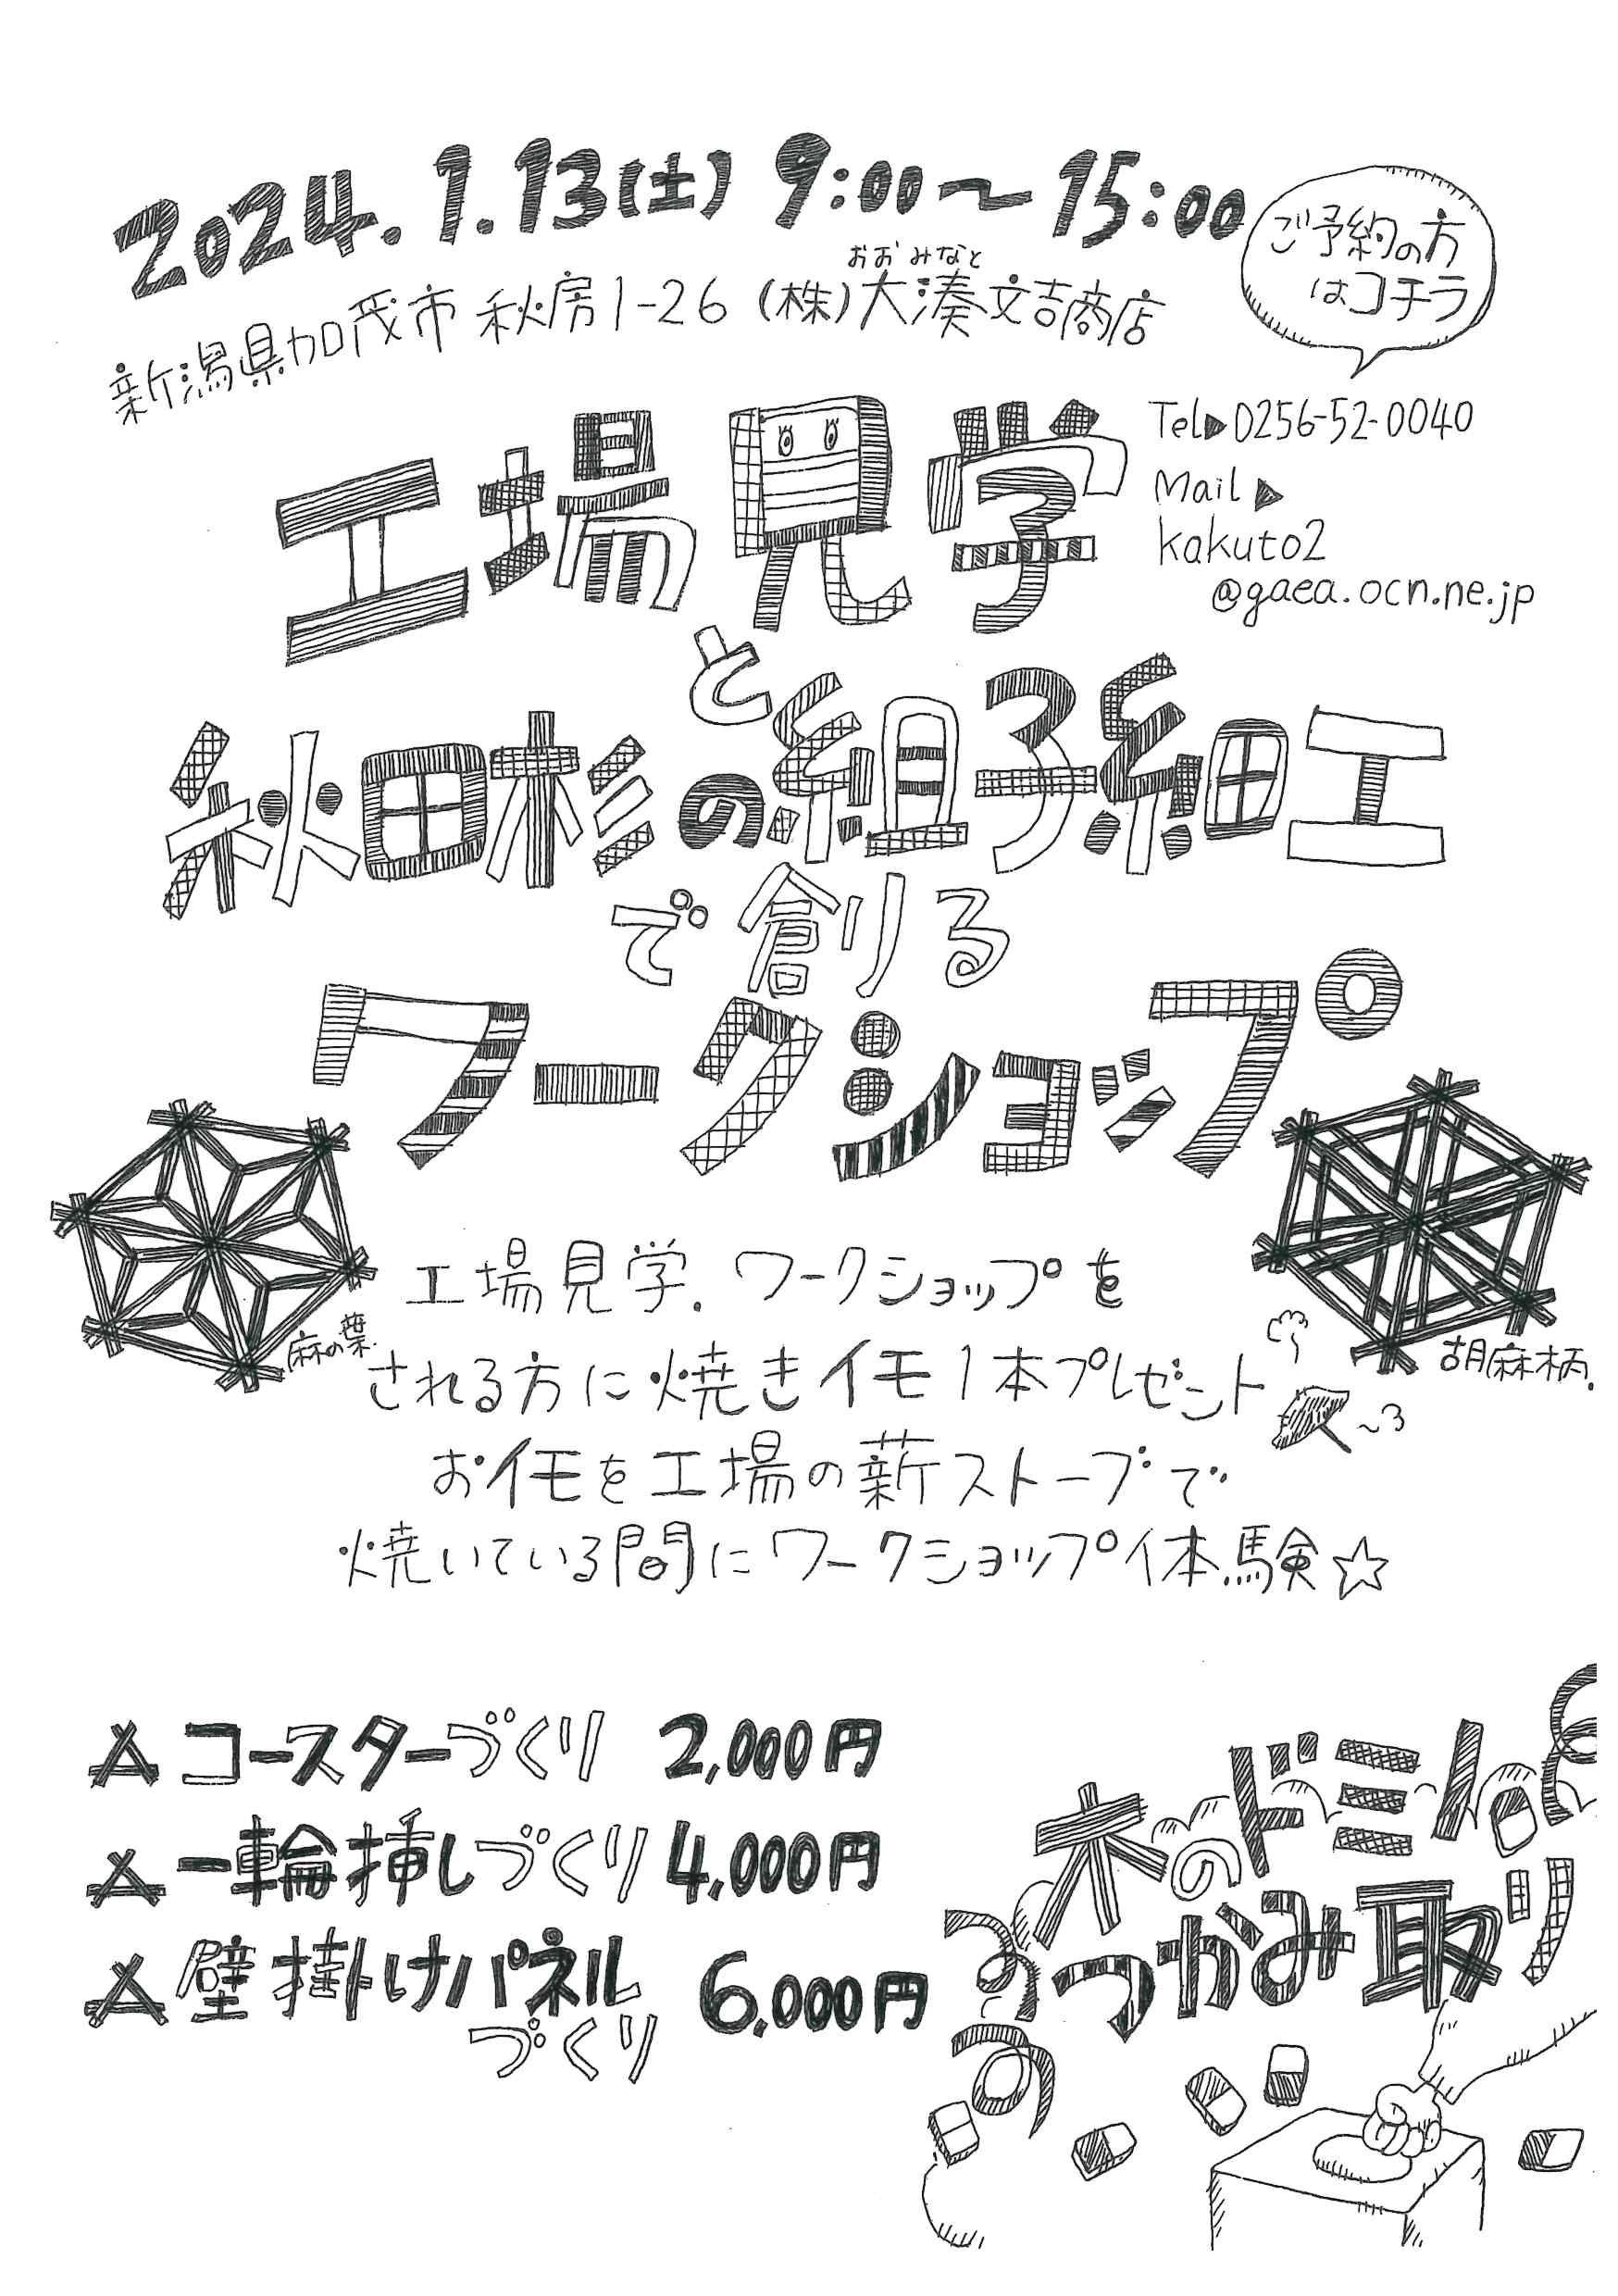 2024.1.13(土) 9:00〜15:00
ご予約の方
はコチラ
おおみなと
新潟県加茂市秋房1-26 (株)大湊文吉商店
Tel▶0256-52-0040
Mail▶
kakuto2
@gaea.ocn.ne.jp
工場見学
と
秋田杉の組子細工
で創る
ワークショップ
麻の葉
胡麻柄
工場見学、ワークショップを
される方に焼きイモ1本プレゼント
おイモを工場の薪ストーブで
焼いている間にワークショップ体験☆
コースターづくり 2,000円
一輪挿しづくり 4,000円
壁掛けパネル
づくり 6,000円
木のドミノ
つかみ取り